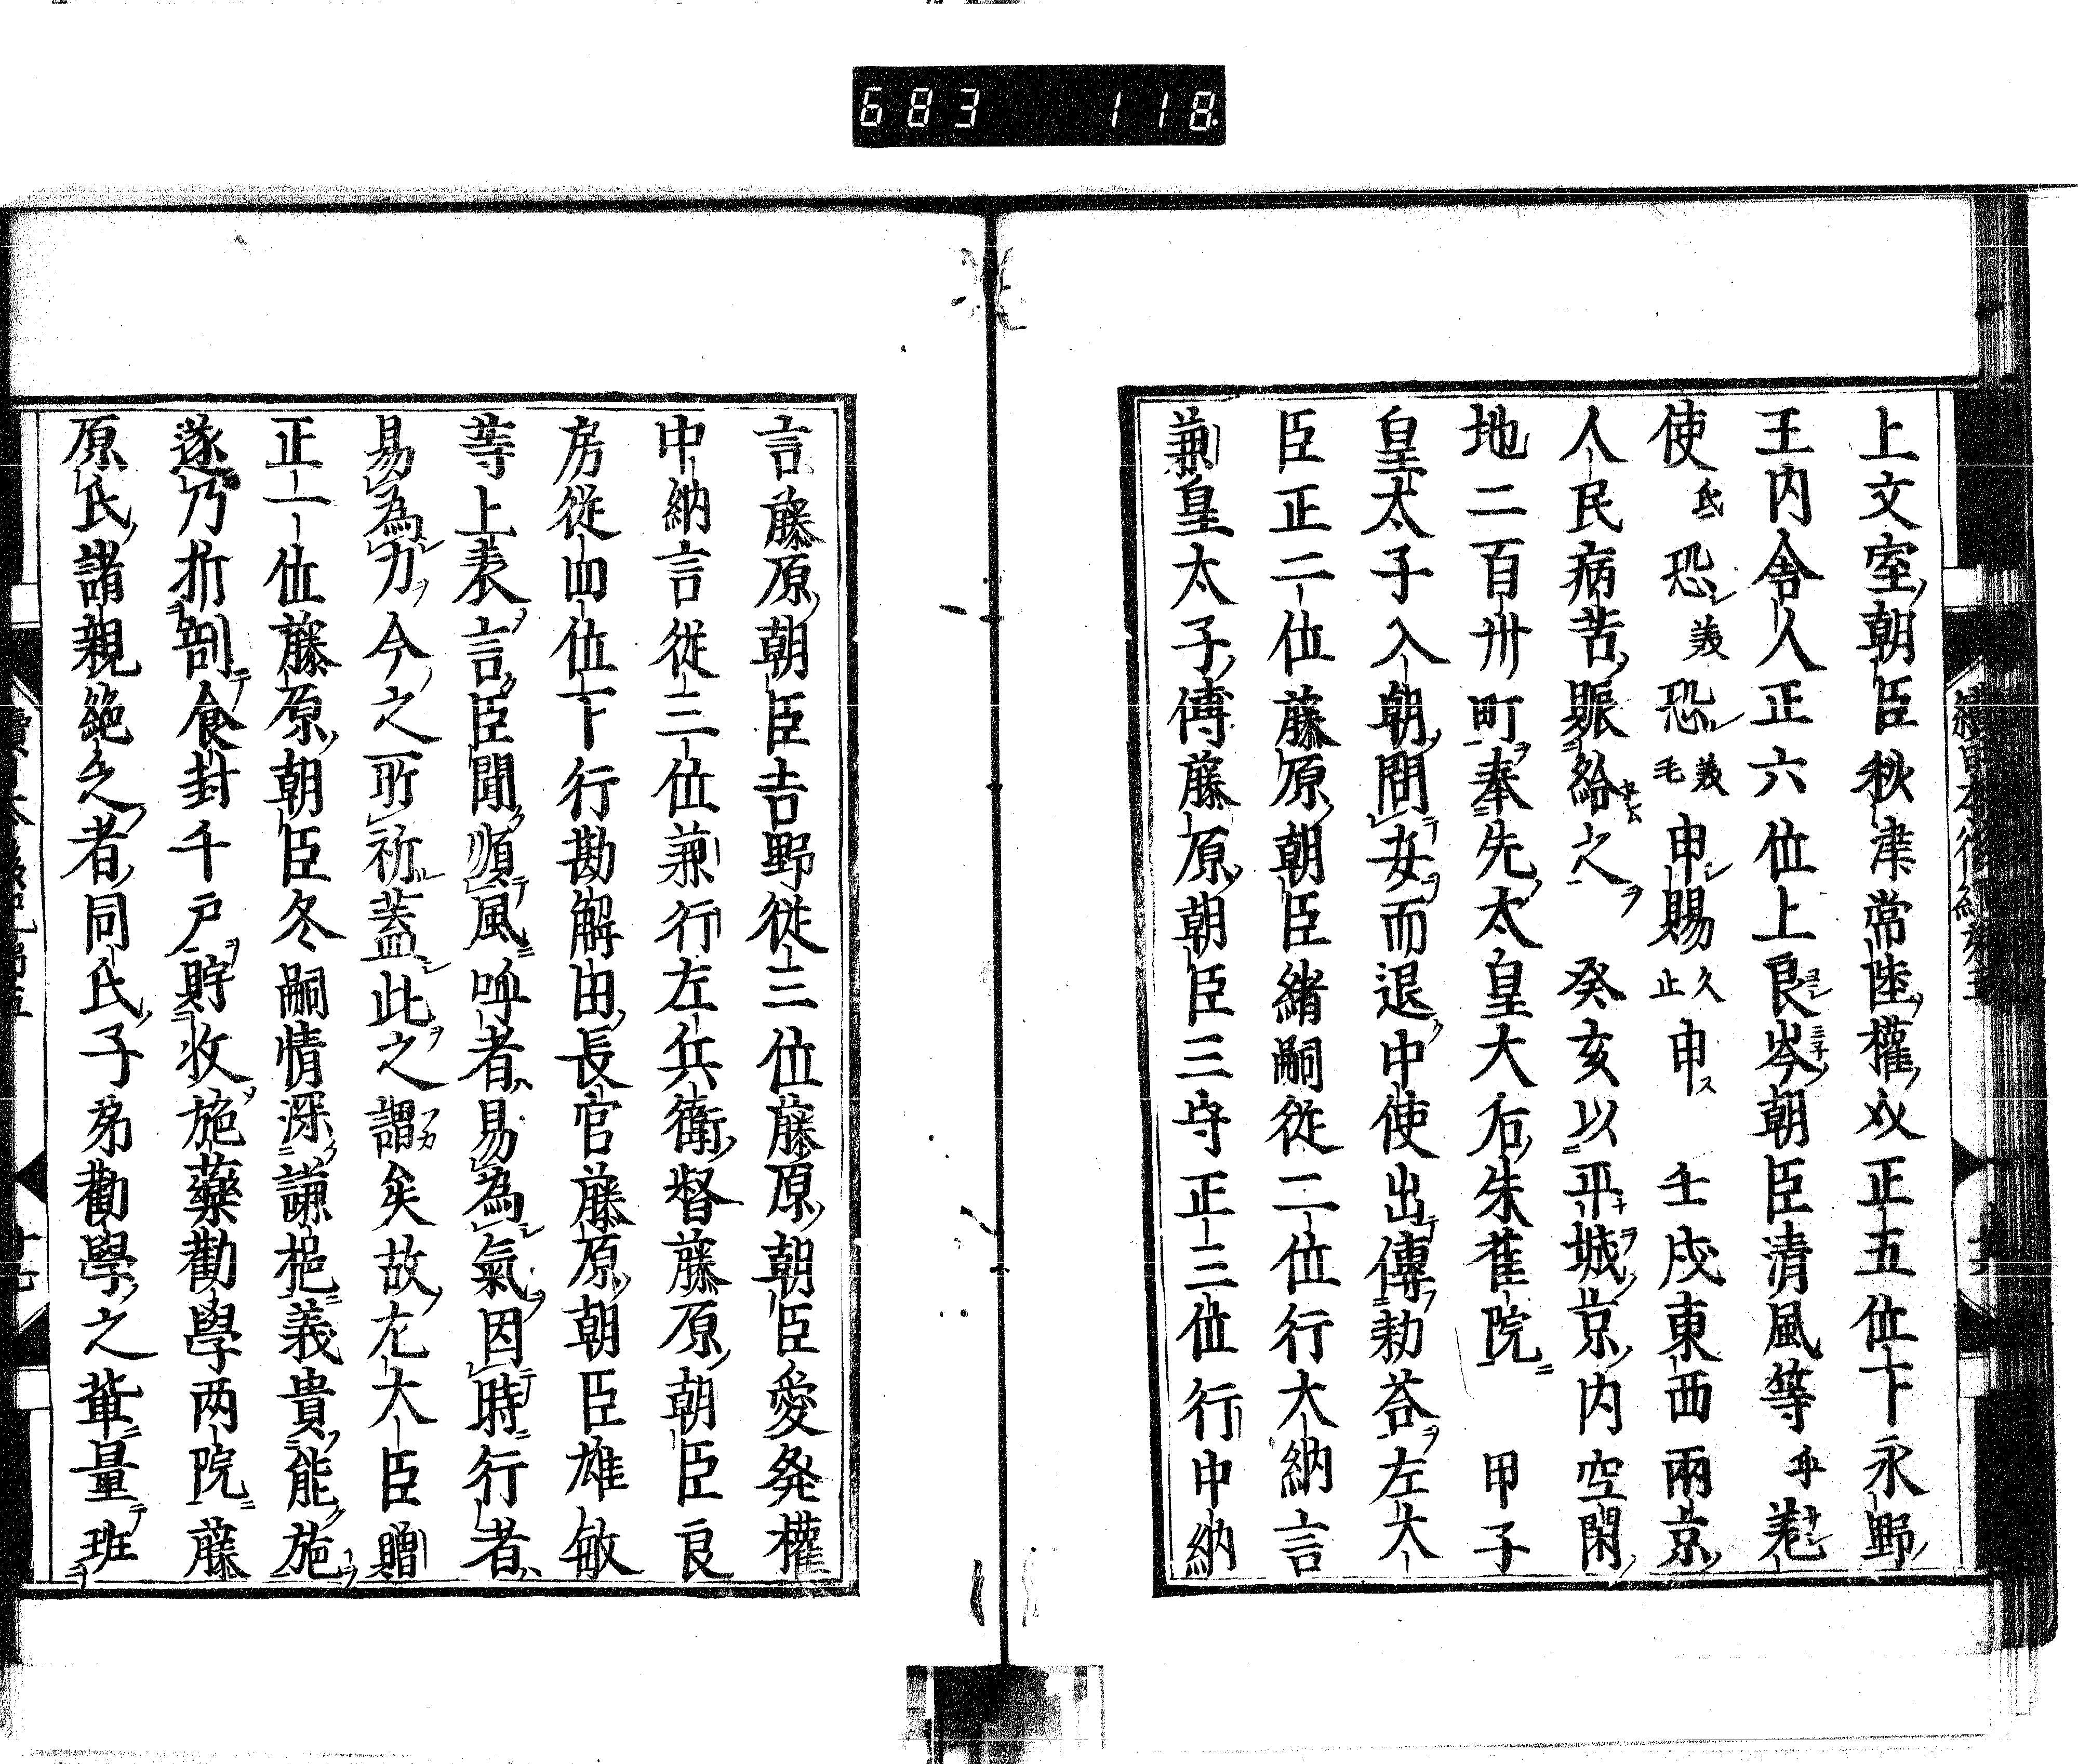 683 118
上文室朝臣秋津常陸權介正五位下永野
王内舎人正六位上良岑朝臣清風等乎差
使氐恐美恐美毛申賜久止申 壬戌東西兩京
人民病苦賑給之 癸亥以平城京内空閑
地二百卅町奉先太皇大后朱雀院 甲子
皇太子入朝問安而退中使出傳勅荅左大
臣正二位藤原朝臣緒嗣從二位行大納言
兼皇太子傅藤原朝臣三守正三位行中納
言藤原朝臣吉野從三位藤原朝臣愛発權
中納言從三位兼行左兵衛督藤原朝臣良
房從四位下行勘解由長官藤原朝臣雄敏
等上表言臣聞順風呼者易為氣因時行者
易為力今之所祈蓋此之謂矣故左大臣贈
正一位藤原朝臣冬嗣情深謙挹義貴能施
遂乃折割食封千戸貯收施藥勸學两院藤
原氏諸親絶乏者同氏子弟勸學之輩量班